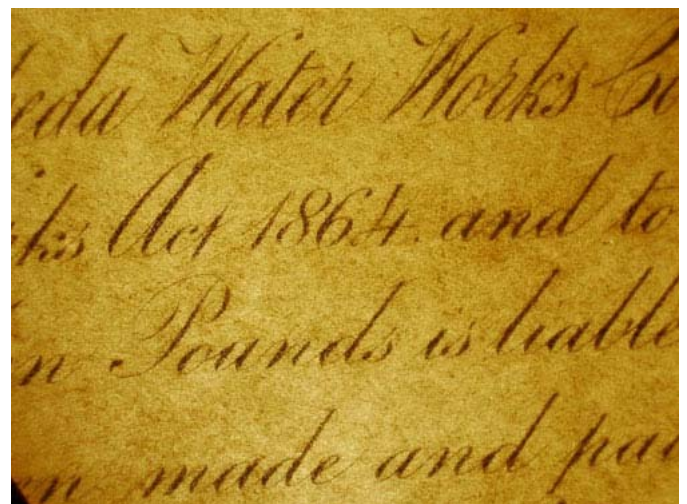 heda Water Works Co
rks Act 1864. and to
n Pounds is liable
en made and pai